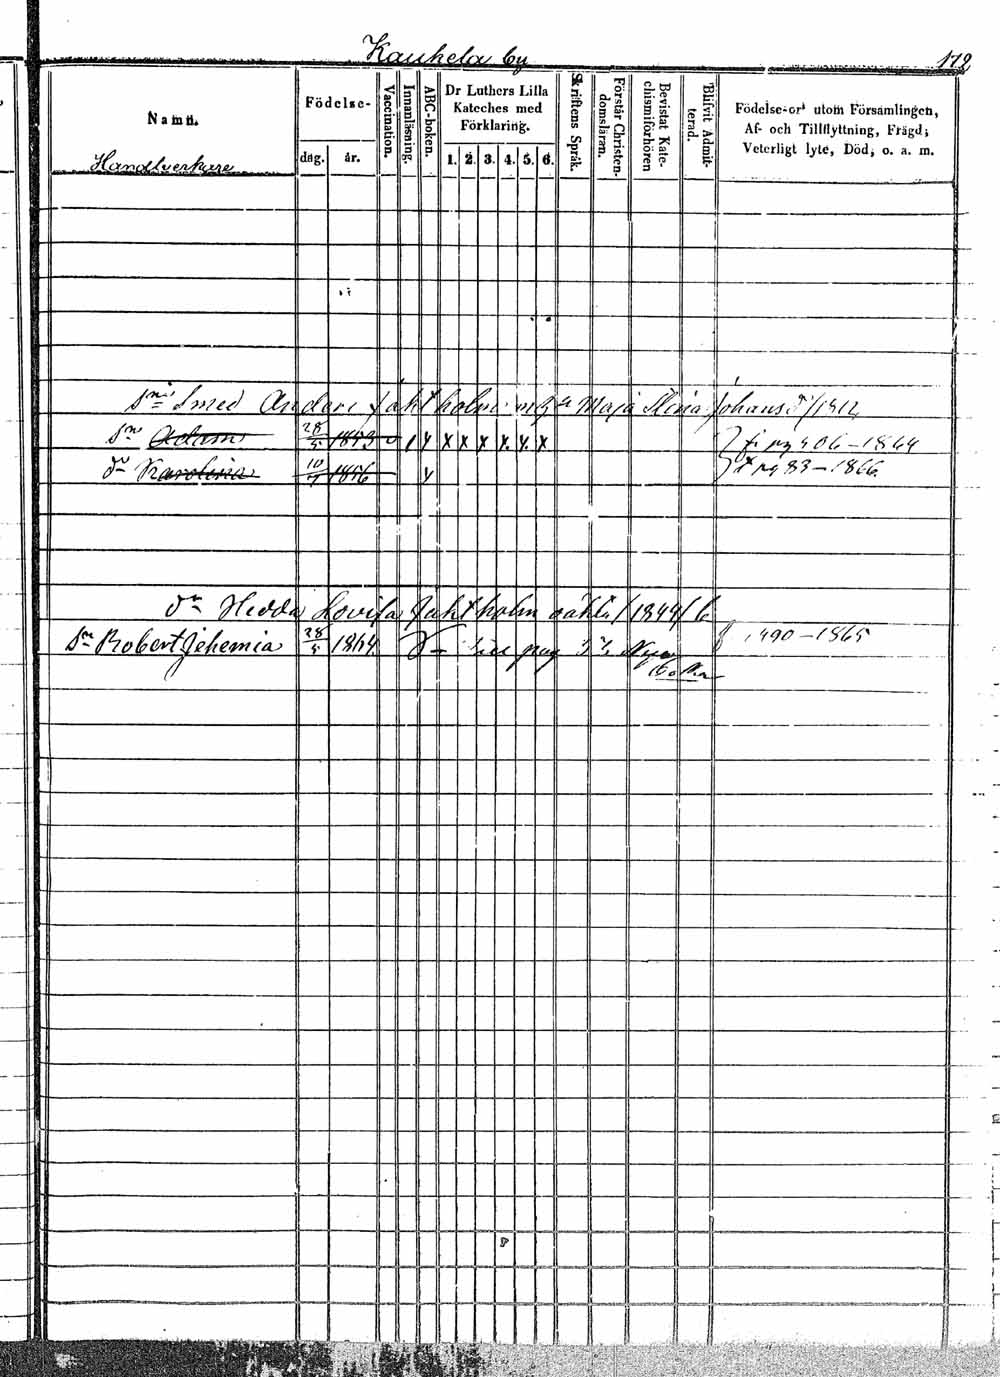 Kaukela by
172
Namn.
Födelse-
dag.
år.
Vaccination.
Innanläsning.
ABC-boken.
Dr Luthers Lilla
Kateches med
Förklaring.
1. 2. 3. 4. 5. 6.
Skriftens Språk.
Förstår Christen-
domsläran.
Bevistat Kate-
chismiförhören
Blifvit Admit-
terad.
Födelse-ort utom Församlingen,
Af- och Tillflyttning, Frägd;
Veterligt lyte, Död, o. a. m.
Handtverkare
Smed Anders Jahtholm Maja Stina Johans /1812
Sn Adam 28/5 1843 x x x x x x 406-1864
dr Karolina 10/ 1856 pg 83-1866.
dr Hedda Lovisa Jahtholm oäkta /1844/ 6
Sn Robert Jehemia 28/5 1864. 1490-1865